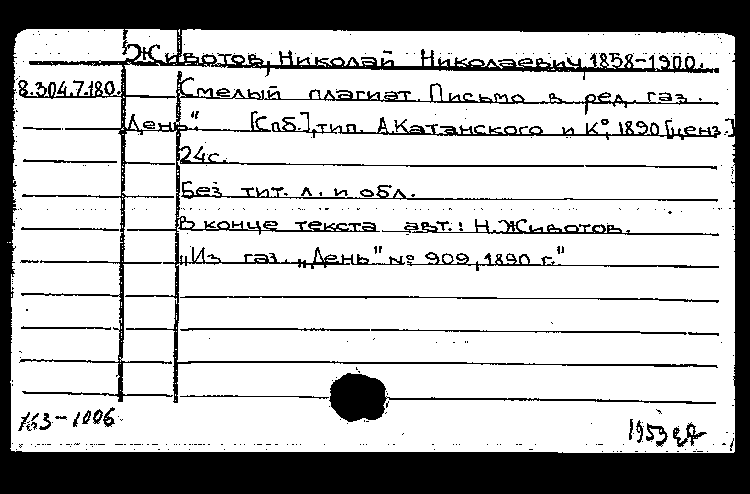 Животов, Николай Николаевич, 1858-1900.
8.304.7.180. Смелый плагиат. Письмо в ред. газ.
„День“. [Спб.], тип. А.Катанского и К°, 1890 [ценз.]
24с.
Без тит. л. и обл.
В конце текста авт.: Н.Животов.
„Из газ. „День“ № 909, 1890 г.“
163-1006
1953